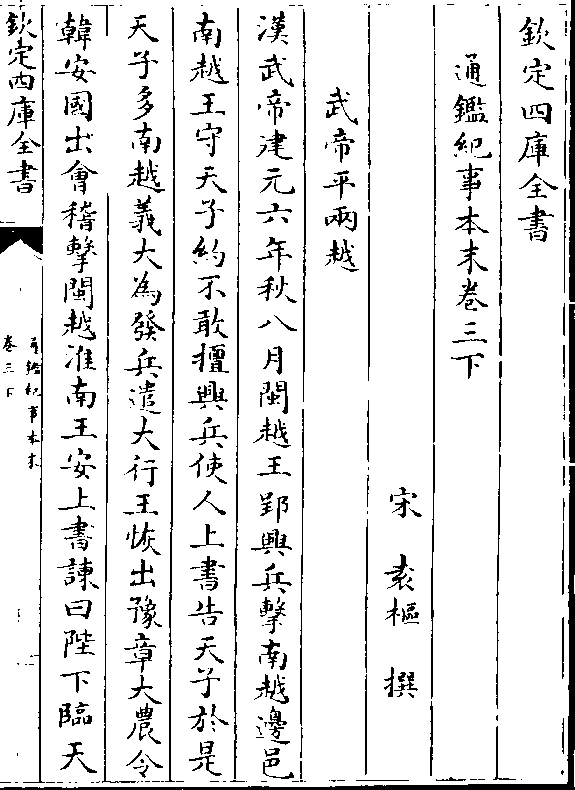 欽定四庫全書
通鑑紀事本末卷三下
宋 袁樞 撰
武帝平兩越
漢武帝建元六年秋八月閩越王郢興兵擊南越邊邑
南越王守天子約不敢擅興兵使人上書告天子於是
天子多南越義大為發兵遣大行王恢出豫章大農令
韓安國出會稽擊閩越淮南王安上書諫曰陛下臨天
欽定四庫全書
通鑑紀事本末
卷三下